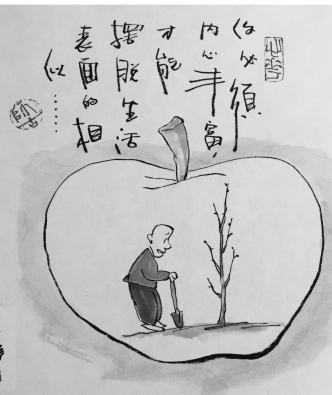 你必须
内心丰富
才能
摆脱生活
表面的相
似……